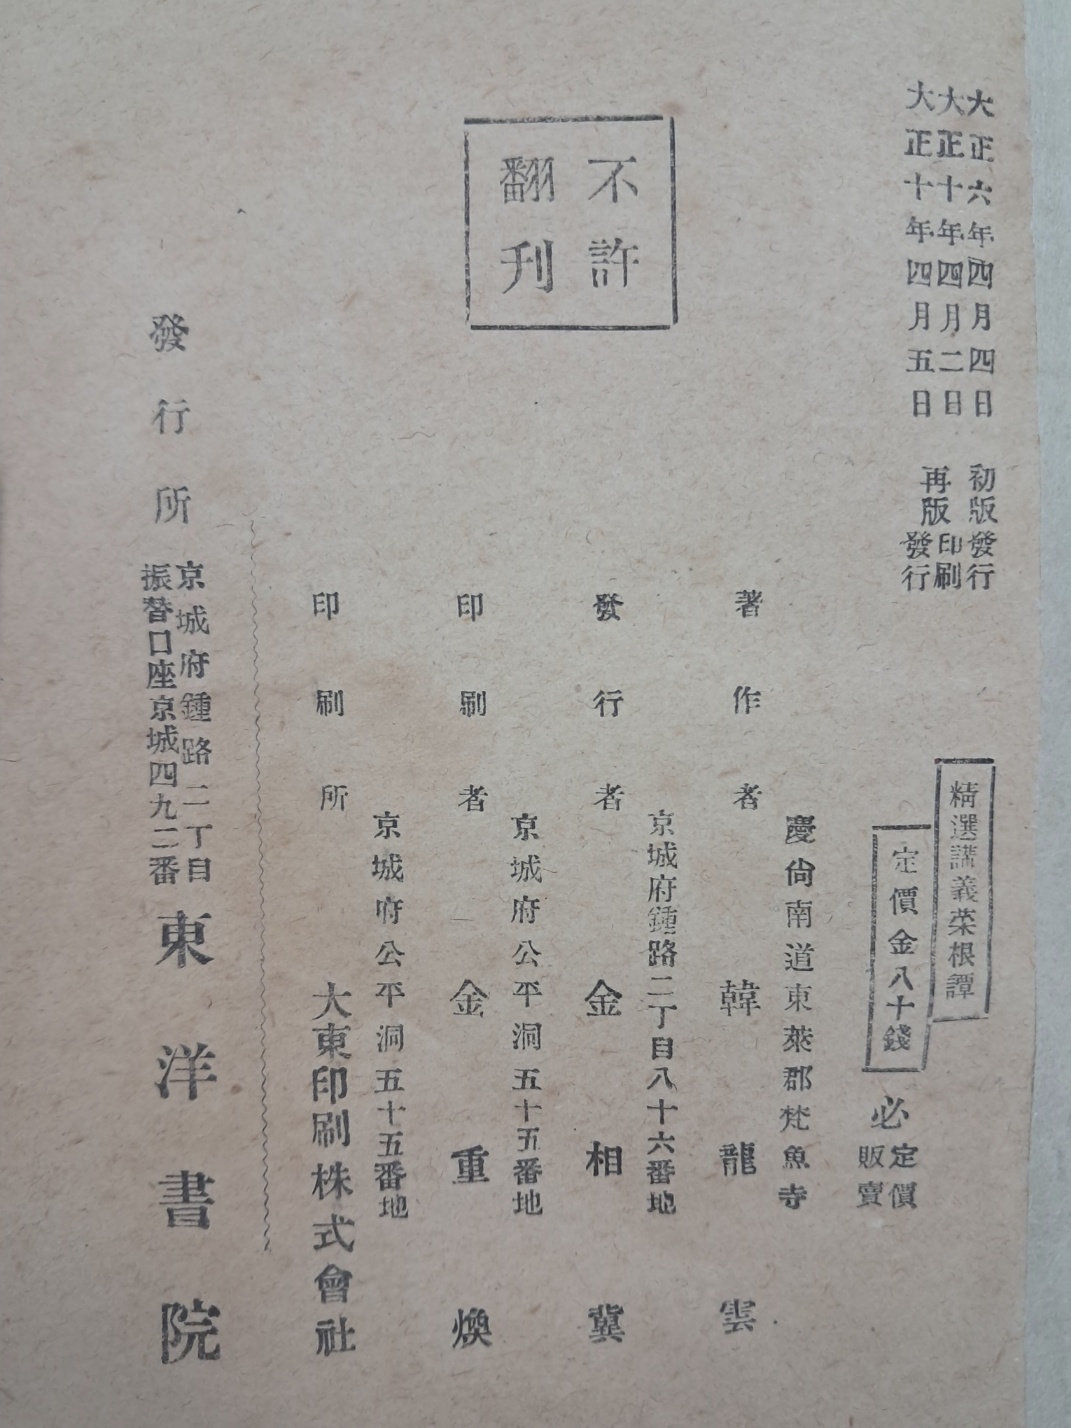 大正六年四月四日 初版發行
大正十年四月二日 再版印刷
大正十年四月五日 發行
精選講義菜根譚
定價金八十錢
必定價販賣
不許翻刊
慶尙南道東萊郡梵魚寺
著作者 韓龍雲
京城府鍾路二丁目八十六番地
發行者 金相冀
京城府公平洞五十五番地
印刷者 金重煥
京城府公平洞五十五番地
印刷所 大東印刷株式會社
發行所
京城府鍾路二丁目
振替口座京城四九二番
東洋書院